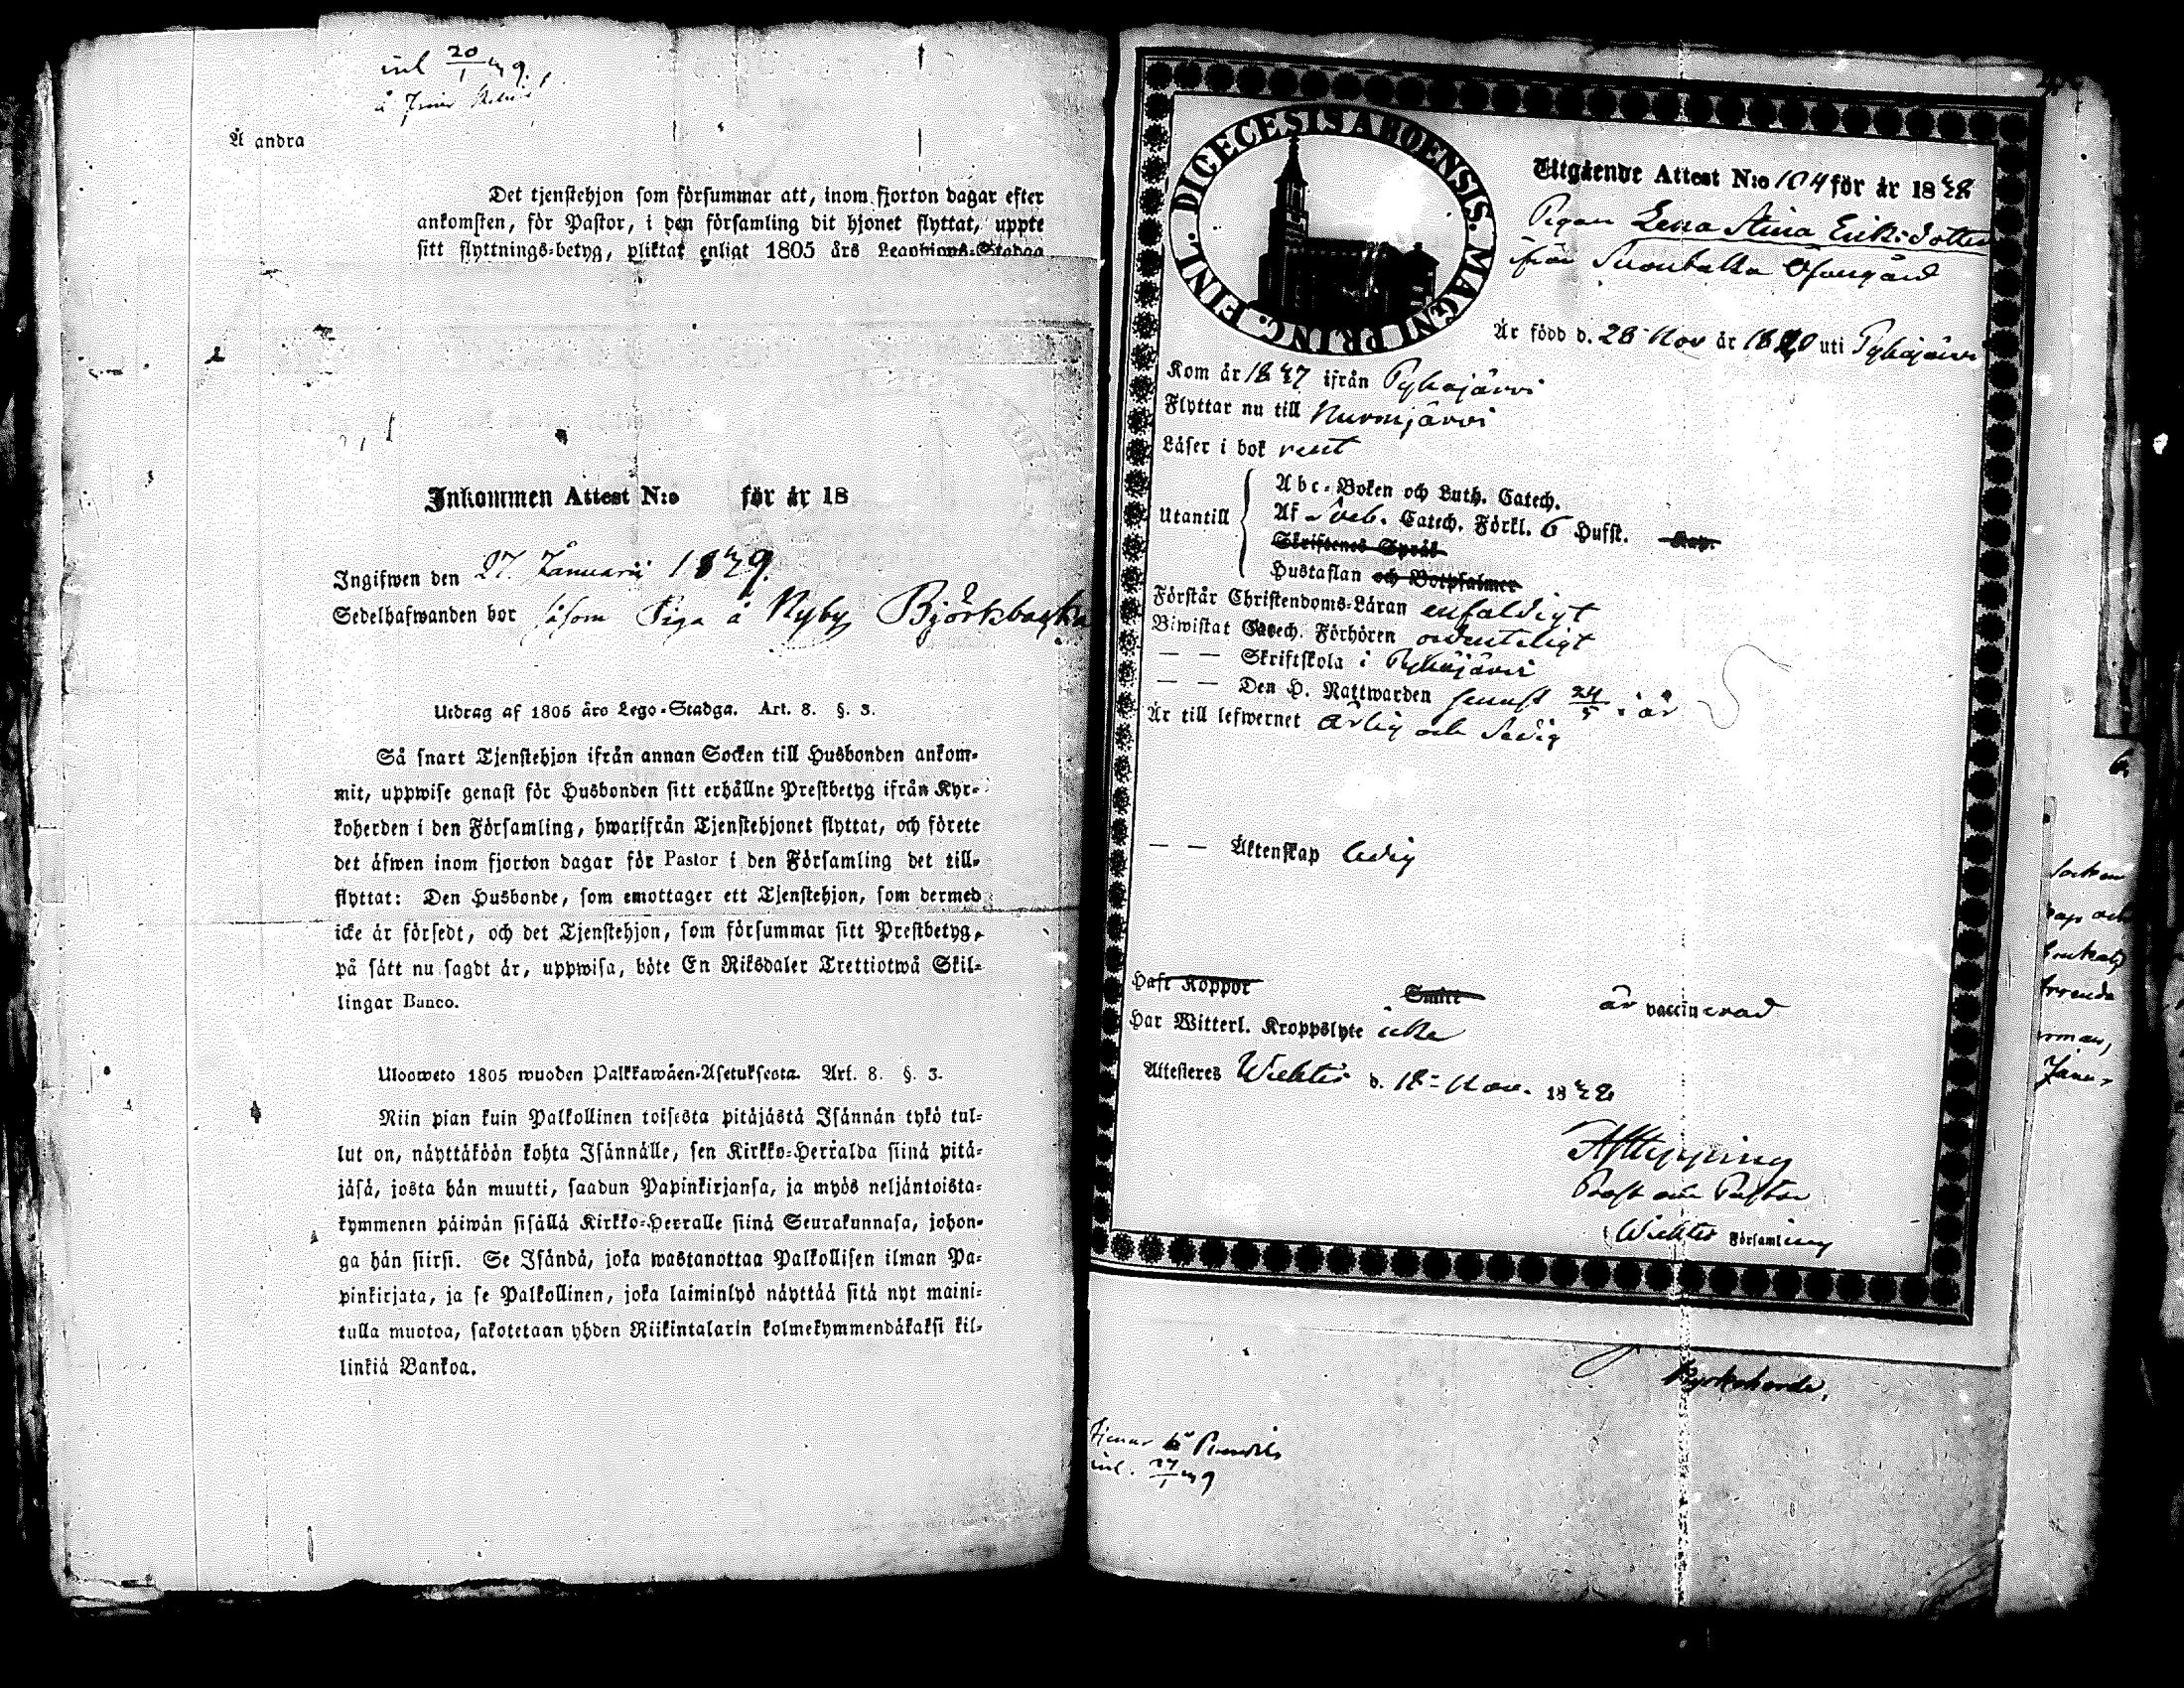 inl 20/1 49.
Å andra
Det tjenstehjon som försummar att, inom fjorton dagar efter
ankomsten, för Pastor, i den församling dit hjonet flyttat, uppte
sitt flyttnings-betyg, pliktat enligt 1805 års Legohjons-Stadga
Inkommen Attest N:o för år 18
Ingifwen den 27 Januarii 1849.
Sedelhafwanden bor såsom Piga å Nyby Björkbacka
Utdrag af 1805 års Lego-Stadga. Art. 8. §. 3.
Så snart Tjenstehjon ifrån annan Socken till Husbonden ankom-
mit, uppwise genast för Husbonden sitt erhållne Prestbetyg ifrån Kyr-
koherden i den Församling, hwarifrån Tjenstehjonet flyttat, och förete
det äfwen inom fjorton dagar för Pastor i den Församling det till-
flyttat: Den Husbonde, som emottager ett Tjenstehjon, som dermed
icke är försedt, och det Tjenstehjon, som försummar sitt Prestbetyg,
på sätt nu sagdt är, uppwisa, böte En Riksdaler Trettiotwå Skil-
lingar Banco.
Uloosweto 1805 wuoden Palkkawäen-Asetuksesta. Art. 8. §. 3.
Niin pian kuin Palkollinen toisesta pitäjästä Isännän tykö tul-
lut on, näyttäköön kohta Isännälle, sen Kirkko-Herralda siinä pitä-
jäsä, josta hän muutti, saadun Papinkirjansa, ja myös neljäntoista-
kymmenen päiwän sisällä Kirkko-Herralle siinä Seurakunnasa, johon-
ga hän siirsi. Se Isändä, joka wastanottaa Palkollisen ilman Pa-
pinkirjata, ja se Palkollinen, joka laiminlyö näyttää sitä nyt maini-
tulla muotoa, sakotetaan yhden Riikintalarin kolmekymmendäkaksi kil-
linkiä Bankoa.
DIOECESIS ABOENSIS. MAGNI PRINC. FINL.
Utgående Attest N:o 104 för år 1848
Pigan Lena Stina Eriksdotter
från Ofvangård
Är född d. 28 Nov år 1820 uti Pyhäjärvi
Kom år 1847 ifrån Pyhäjärvi
Flyttar nu till Nurmijärvi
Läser i bok rent
Utantill
Abc-Boken och Luth. Catech.
Af Sveb. Catech. Förkl. 6 Hufst. Kap.
Skriftenes Språk
Hustaflan och Botpsalmer
Förstår Christendoms-Läran enfaldigt
Biwistat Catech. Förhören ordenteligt
— — Skriftskola i Pyhäjärvi
— — Den H. Nattwarden senast 24/5 i år
Är till lefwernet ärlig och sedig
— — Äktenskap ledig
Haft Koppor Smitt är vaccinerad
Har Witterl. Kroppslyte icke
Attesteres Wichtis d. 18 Nov. 1848
Prost och Pastor
i Wichtis Församling
Kyrkoherde,
Tjenar
inl. 27/1 49